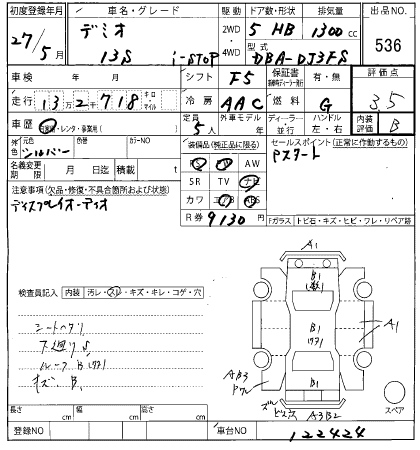 初度登録年月 車名・グレード 駆動 ドア数・形状 排気量 出品NO.
27/5月 デミオ 2WD 5 HB 1300cc 536
13S i-STOP 4WD 型式 DBA-DJ3FS
車検 年 月 シフト F5 保証書 有・無 評価点
走行 13万2千718 キロ・マイル 冷房 AAC 燃料 G 3.5
車歴 自家用・レンタ・事業用( ) 定員 5人 外車モデル 年 ディーラー・並行 ハンドル 左・右 内装評価 B
外色 元色 シルバー 色替 カラーNO 装備品(純正品に限る) セールスポイント(正常に作動するもの)
名義変更期限 月 日迄 積載 t AW Pスタート
注意事項(欠品・修復・不具合箇所および状態) SR TV ナビ
ディスプレイオーディオ カワ エアB ABS
R券 9130円 Fガラス トビ石・キズ・ヒビ・ワレ・リペア跡
A1
検査員記入 内装 汚レ・スレ・キズ・キレ・コゲ・穴 B1
シートヘタリ B1 A1
下廻りS
ルーフB
キズ、B AB3
A3B2 スペア
長さ cm 幅 cm 高さ cm
登録NO 車台NO 122424